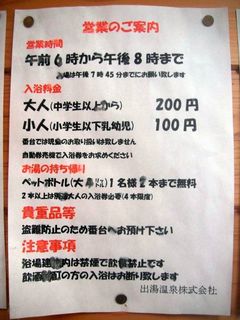 営業のご案内
営業時間
午前6時から午後8時まで
場は午後7時45分までにお願い致します
入浴料金
大人(中学生以上から) 200円
小人(小学生以下乳幼児) 100円
番台では現金のお取り扱いは致しません
自動券売機で入浴券をお求めください
お湯の持ち帰り
ペットボトル(大 1名様 本まで無料
2本以上は 大人の入浴券必要(4本限度)
貴重品等
盗難防止のため番台へお預け下さい
注意事項
浴場建 内は禁煙で飲 禁止です
飲酒 の方の入浴はお断り致します
出湯温泉株式会社